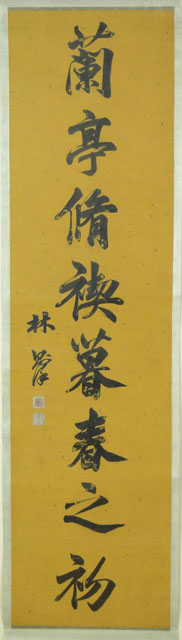 蘭亭脩禊暮春之初
林